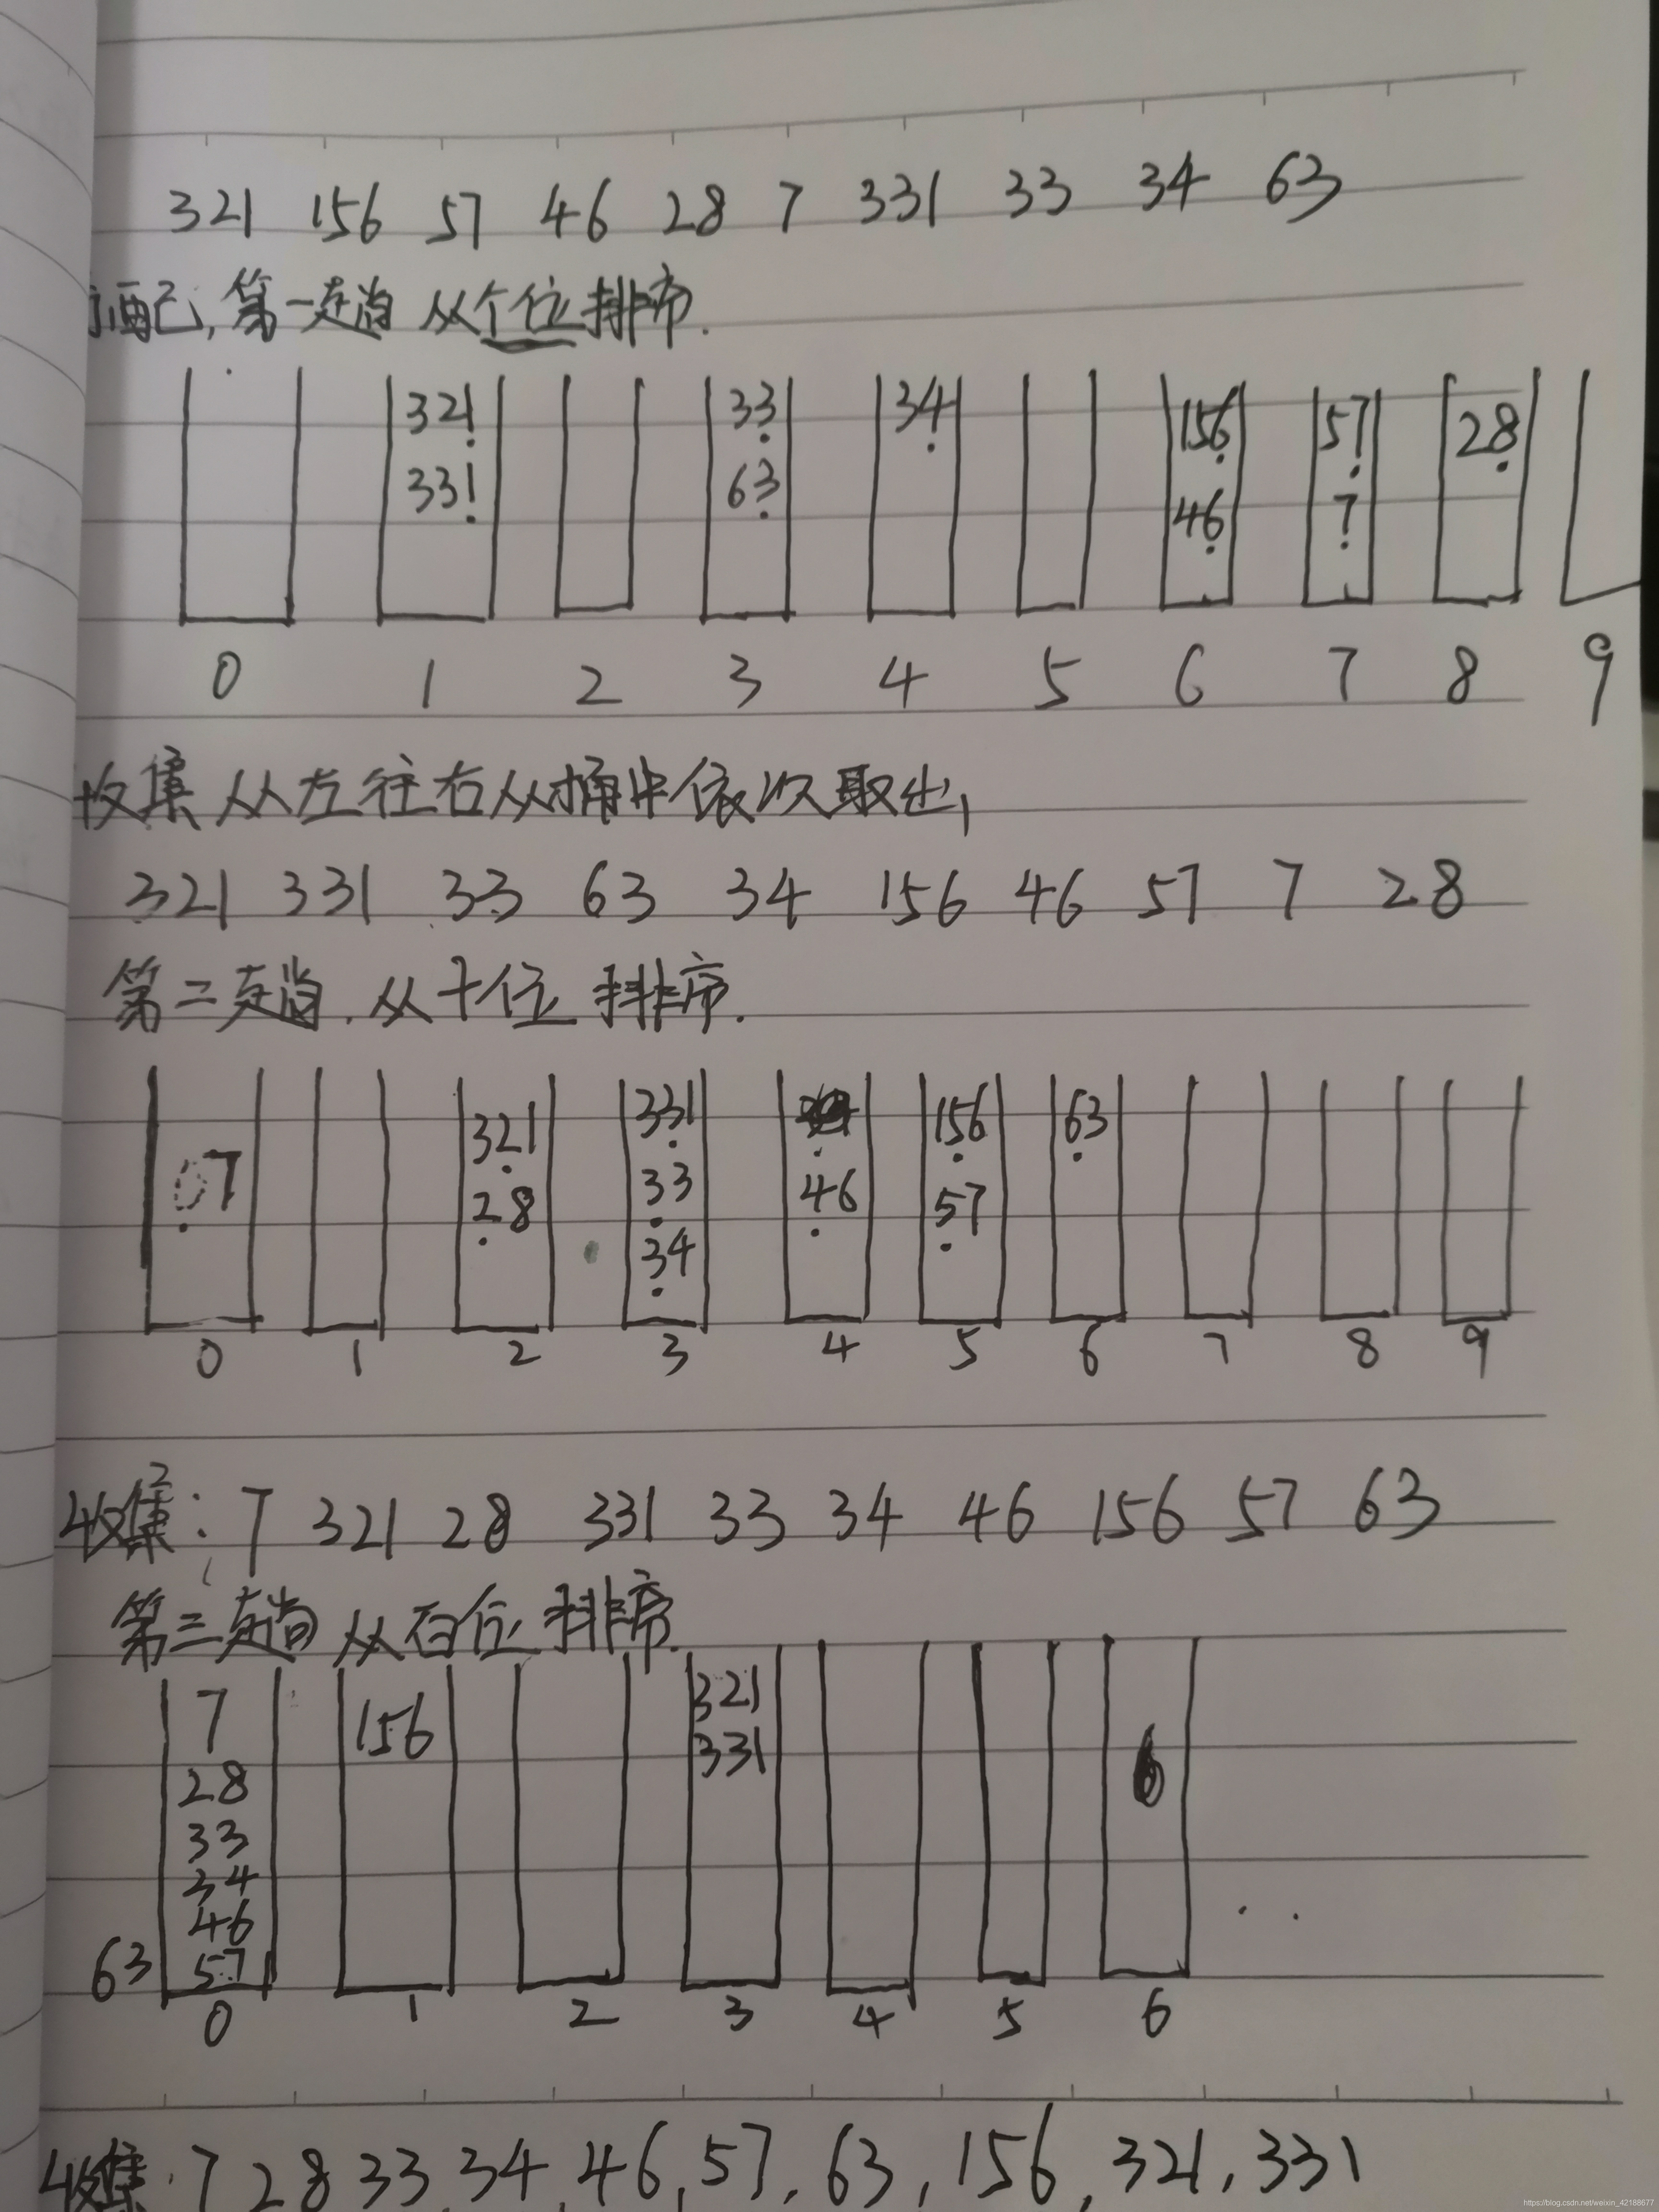 321 156 57 46 28 7 331 33 34 63
分配, 第一趟 从个位排序.
321 33 34 156 57 28
331 63 46 7
0 1 2 3 4 5 6 7 8 9
收集 从左往右从桶中依次取出,
321 331 33 63 34 156 46 57 7 28
第二趟. 从十位排序.
07 321 331 46 156 63
28 33 57
34
0 1 2 3 4 5 6 7 8 9
收集: 7 321 28 331 33 34 46 156 57 63
第三趟 从百位排序.
7 156 321
28 331
33
34
46
63 57
0 1 2 3 4 5 6 . .
收集. 7 28 33 34, 46, 57, 63, 156, 321, 331
https://blog.csdn.net/weixin_42188677